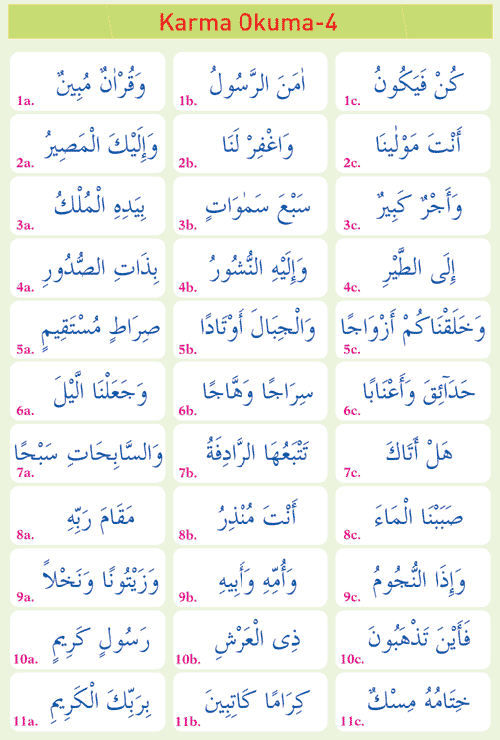 Karma Okuma-4
1a. وَقُرْاٰنٌ مُبِينٌ
1b. اٰمَنَ الرَّسُولُ
1c. كُنْ فَيَكُونُ
2a. وَإِلَيْكَ الْمَصِيرُ
2b. وَاغْفِرْ لَنَا
2c. أَنْتَ مَوْلٰينَا
3a. بِيَدِهِ الْمُلْكُ
3b. سَبْعَ سَمٰوَاتٍ
3c. وَأَجْرٌ كَبِيرٌ
4a. بِذَاتِ الصُّدُورِ
4b. وَإِلَيْهِ النُّشُورُ
4c. إِلَى الطَّيْرِ
5a. صِرَاطٍ مُسْتَقِيمٍ
5b. وَالْجِبَالَ أَوْتَادًا
5c. وَخَلَقْنَاكُمْ أَزْوَاجًا
6a. وَجَعَلْنَا الَّيْلَ
6b. سِرَاجًا وَهَّاجًا
6c. حَدَآئِقَ وَأَعْنَابًا
7a. وَالسَّابِحَاتِ سَبْحًا
7b. تَتْبَعُهَا الرَّادِفَةُ
7c. هَلْ أَتَاكَ
8a. مَقَامَ رَبِّهِ
8b. أَنْتَ مُنْذِرُ
8c. صَبَبْنَا الْمَاءَ
9a. وَزَيْتُونًا وَنَخْلاً
9b. وَأُمِّهِ وَأَبِيهِ
9c. وَإِذَا النُّجُومُ
10a. رَسُولٍ كَرِيمٍ
10b. ذِى الْعَرْشِ
10c. فَأَيْنَ تَذْهَبُونَ
11a. بِرَبِّكَ الْكَرِيمِ
11b. كِرَامًا كَاتِبِينَ
11c. خِتَامُهُ مِسْكٌ